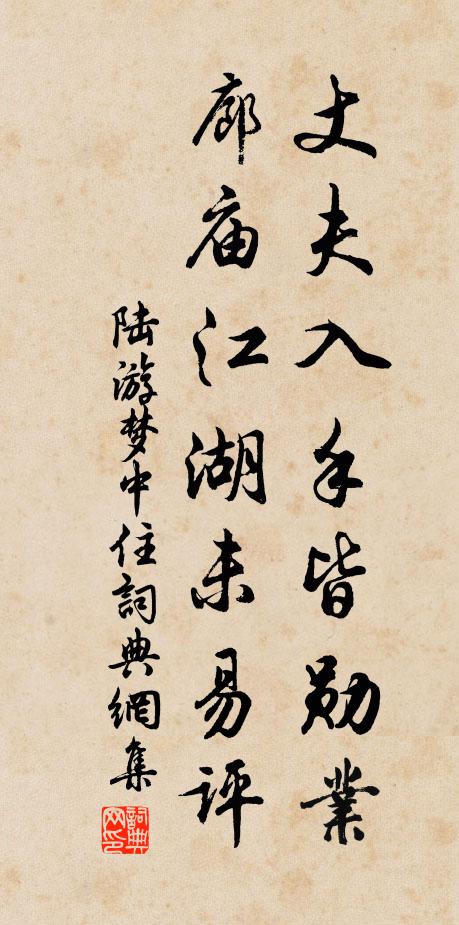 丈夫入手皆勋業
廊庙江湖未易评
陆游梦中住詞典網集
詞典网印